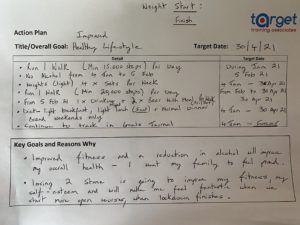 Weight Start:
Finish
target
training associates
Action Plan
Improved
Title/Overall Goal: Healthy Lifestyle
Target Date: 30/4/21
Detail
Target Date
Run / Walk (Min 15,000 steps) per Day
During Jan 21
No Alcohol from 4 Jan to 5 Feb
5 Feb 21
Weights (Light) 4 x Sets per Week
4 Jan - 30 Apr 21
Run / Walk (Min 20,000 steps) per Day
Feb to 30 Apr 21
From 5 Feb 2 x Beer with Meal
30 Apr 21
Diet - light breakfast, light lunch + Normal Dinner
4 Jan - 30 Apr 21
Bread weekends only
Continue to track in Journal
4 Jan - Forward
Key Goals and Reasons Why
Improved fitness and a reduction in alcohol will improve
my overall health - I want my family to feel proud.
losing 2 Stone is going to improve my fitness, my
self-esteem and will make me feel fantastic when we
start more open courses, when lockdown finishes.